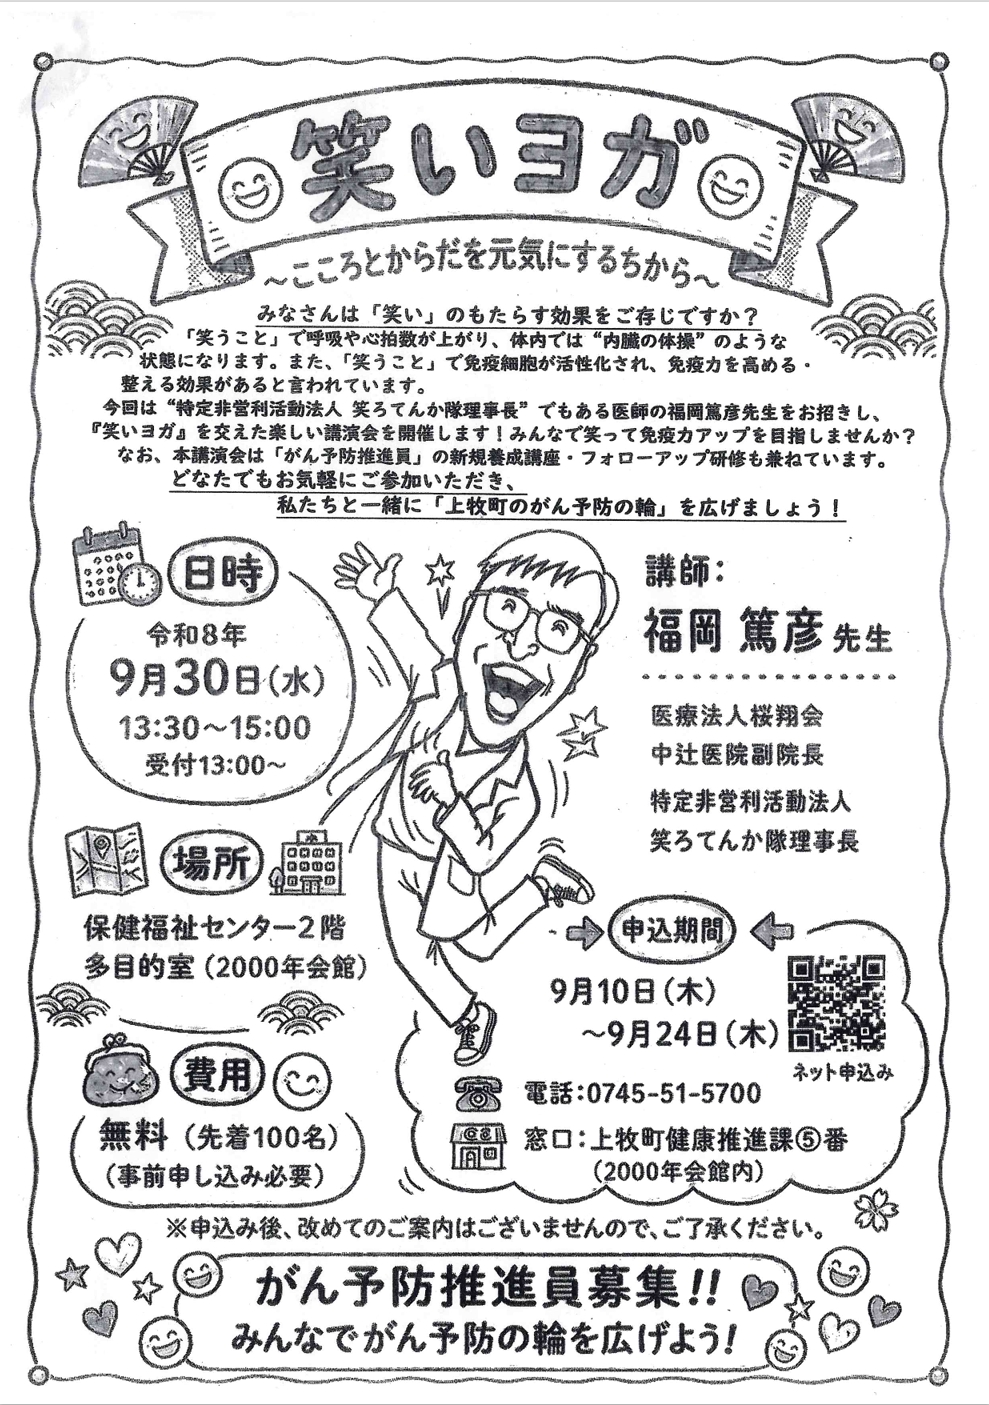 笑いヨガ
～こころとからだを元気にするちから～
みなさんは「笑い」のもたらす効果をご存じですか？
「笑うこと」で呼吸や心拍数が上がり、体内では“内臓の体操”のような
状態になります。また、「笑うこと」で免疫細胞が活性化され、免疫力を高める・
整える効果があると言われています。
今回は“特定非営利活動法人 笑ろてんか隊理事長”でもある医師の福岡篤彦先生をお招きし、
『笑いヨガ』を交えた楽しい講演会を開催します！みんなで笑って免疫力アップを目指しませんか？
なお、本講演会は「がん予防推進員」の新規養成講座・フォローアップ研修も兼ねています。
どなたでもお気軽にご参加いただき、
私たちと一緒に「上牧町のがん予防の輪」を広げましょう！
日時
令和8年
9月30日（水）
13:30～15:00
受付13:00～
講師：
福岡 篤彦 先生
医療法人桜翔会
中辻医院副院長
特定非営利活動法人
笑ろてんか隊理事長
場所
保健福祉センター2階
多目的室（2000年会館）
費用
無料（先着100名）
（事前申し込み必要）
申込期間
9月10日（木）
～9月24日（木）
ネット申込み
電話：0745-51-5700
窓口：上牧町健康推進課⑤番
（2000年会館内）
※申込み後、改めてのご案内はございませんので、ご了承ください。
がん予防推進員募集!!
みんなでがん予防の輪を広げよう！